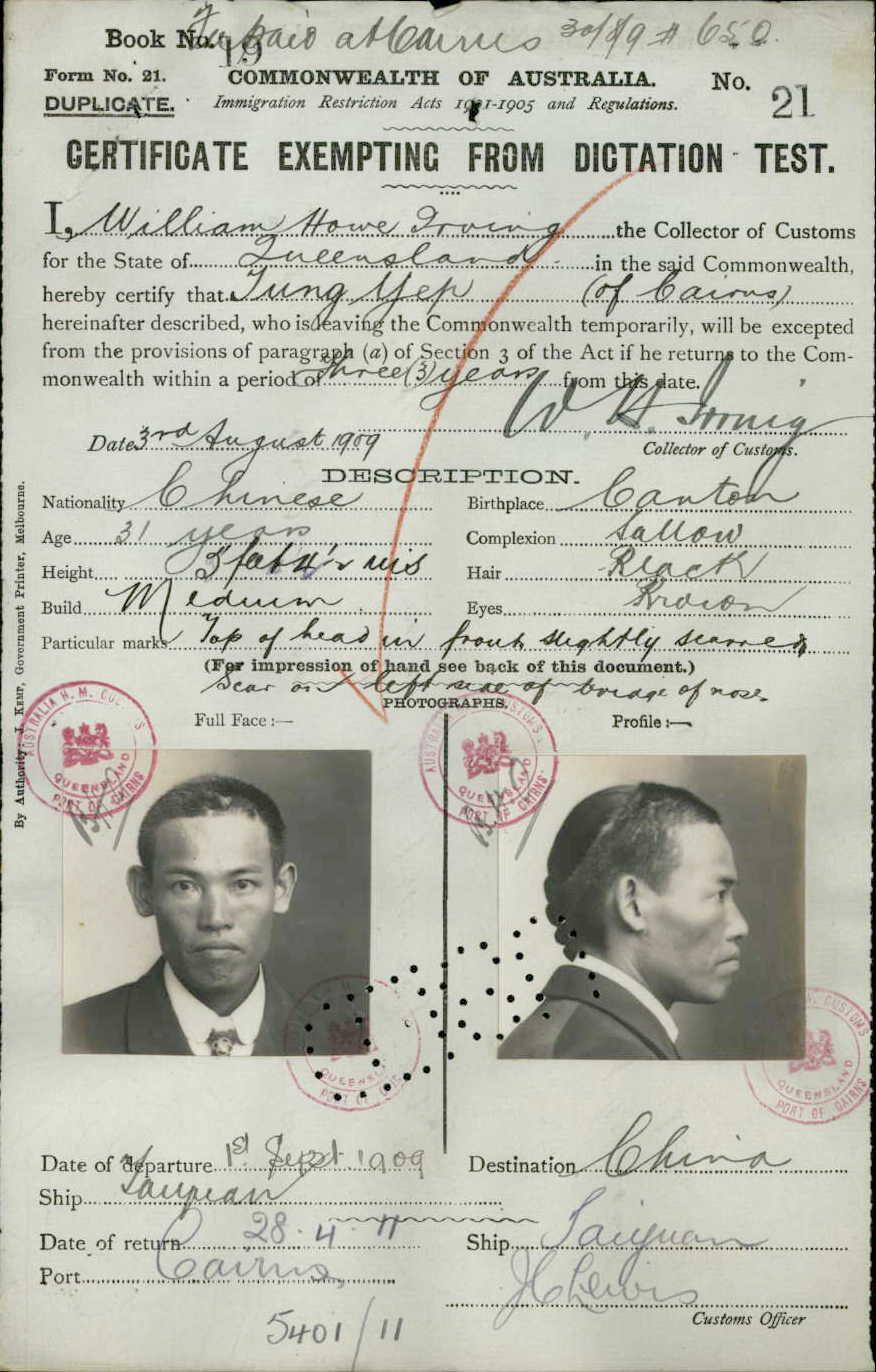 Book No. 19 paid at Cairns 30/8/9 # 650.
Form No. 21. COMMONWEALTH OF AUSTRALIA. No. 21
DUPLICATE. Immigration Restriction Acts 1901-1905 and Regulations.
CERTIFICATE EXEMPTING FROM DICTATION TEST.
I, William Howe Irving the Collector of Customs
for the State of Queensland in the said Commonwealth,
hereby certify that Tung Yep (of Cairns)
hereinafter described, who is leaving the Commonwealth temporarily, will be excepted
from the provisions of paragraph (a) of Section 3 of the Act if he returns to the Com-
monwealth within a period of three (3) years from this date.
W. H. Irving
Date 3rd August 1909 Collector of Customs.
DESCRIPTION.
Nationality Chinese Birthplace Canton
Age 31 years Complexion Sallow
Height 5 feet 4½ ins Hair Black
Build Medium Eyes Brown
Particular marks Top of head in front slightly scarred
(For impression of hand see back of this document.)
Scar on left side of bridge of nose.
PHOTOGRAPHS.
Full Face :— Profile :—
By Authority: J. Kemp, Government Printer, Melbourne.
AUSTRALIA H. M. CUSTOMS
QUEENSLAND
PORT OF CAIRNS
AUSTRALIA H. M. CUSTOMS
QUEENSLAND
PORT OF CAIRNS
QUEENSLAND
PORT OF
CUSTOMS
QUEENSLAND
PORT OF CAIRNS
Date of departure 1st Sept 1909 Destination China
Ship Taiyuan
Date of return 28.4.11 Ship Taiyuan
Port Cairns
Customs Officer
5401/11